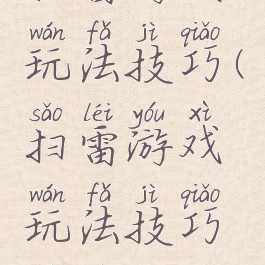 wán fǎ jì qiǎo
玩法技巧(
sǎo léi yóu xì
扫雷游戏
wán fǎ jì qiǎo
玩法技巧